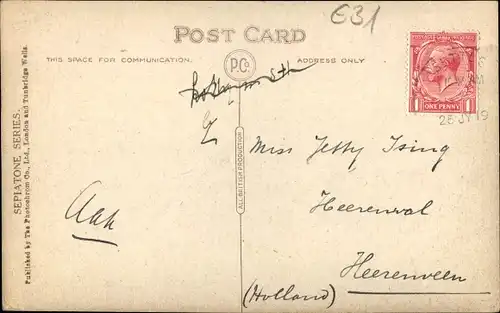 631
POST CARD
THIS SPACE FOR COMMUNICATION.
P.Co.
ADDRESS ONLY
ONE PENNY
1 1
26 JY 19
SEPIATONE SERIES.
Published by The Photochrom Co., Ltd., London and Tunbridge Wells.
ALL BRITISH PRODUCTION
Miss Jetty Tsing
Heerenwal
Heerenveen
(Holland)